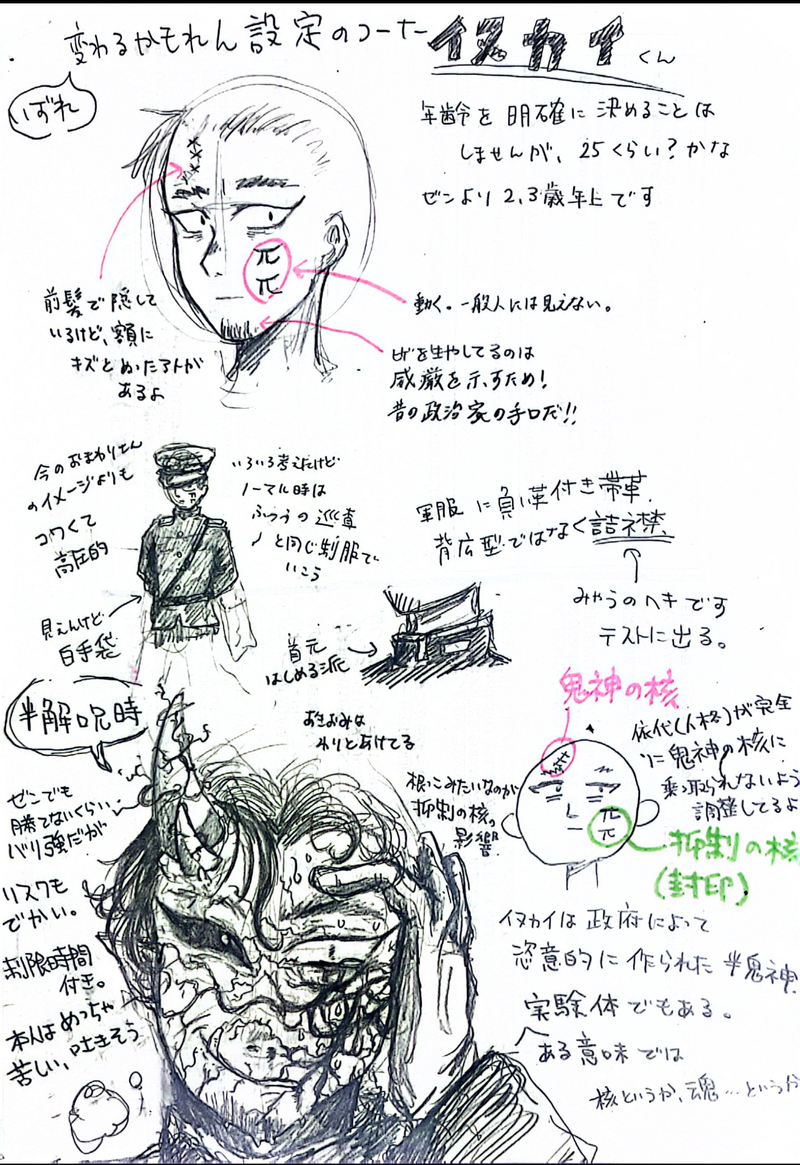 変わるかもれん設定のコーナー
イヌカイくん
いずれ
年齢を明確に決めることは
しませんが、25くらい?かな
ゼンより2,3歳年上です
前髪で隠して
いるけど、額に
キズとぬったアトが
あるよ
兀
兀
動く。一般人には見えない。
ヒゲを生やしてるのは
威厳を示すため!
昔の政治家の手口だ!!
今のおまわりさん
のイメージよりも
コワくて
高圧的
見えんけど
白手袋
いろいろ考えたけど
ノーマル時は
ふつうの巡査
と同じ制服で
いこう
軍服に負い革付き帯革、
背広型ではなく詰襟
みゃうのヘキです
テストに出る。
首元
はじめる派
半解呪時
あきおみは
わりとあけてる
ゼンでも
勝てないくらい
バリ強だが
リスクも
でかい。
制限時間
付き。
本人はめっちゃ
苦しい、吐きそう
根っこみたいなのが
抑制の核の
影響
鬼神の核
依代(人格)が完全
に鬼神の核に
乗っ取られないよう
調整してるよ
兀
兀
抑制の核
(封印)
イヌカイは政府によって
恣意的に作られた半鬼神。
実験体でもある。
ある意味では
核というか、魂…というか